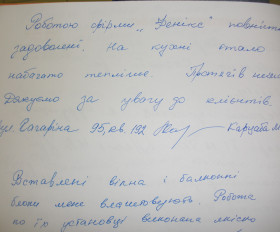 Роботою фірми "Фенікс" повніст
задоволені. На кухні стало
набагато тепліше. Протягів нема
Дякуємо за увагу до клієнтів.
ул. Гагаріна 95, кв. 192
Вставлені вікна і балконні
блоки мене влаштовують. Робота
по їх установці виконана якісно